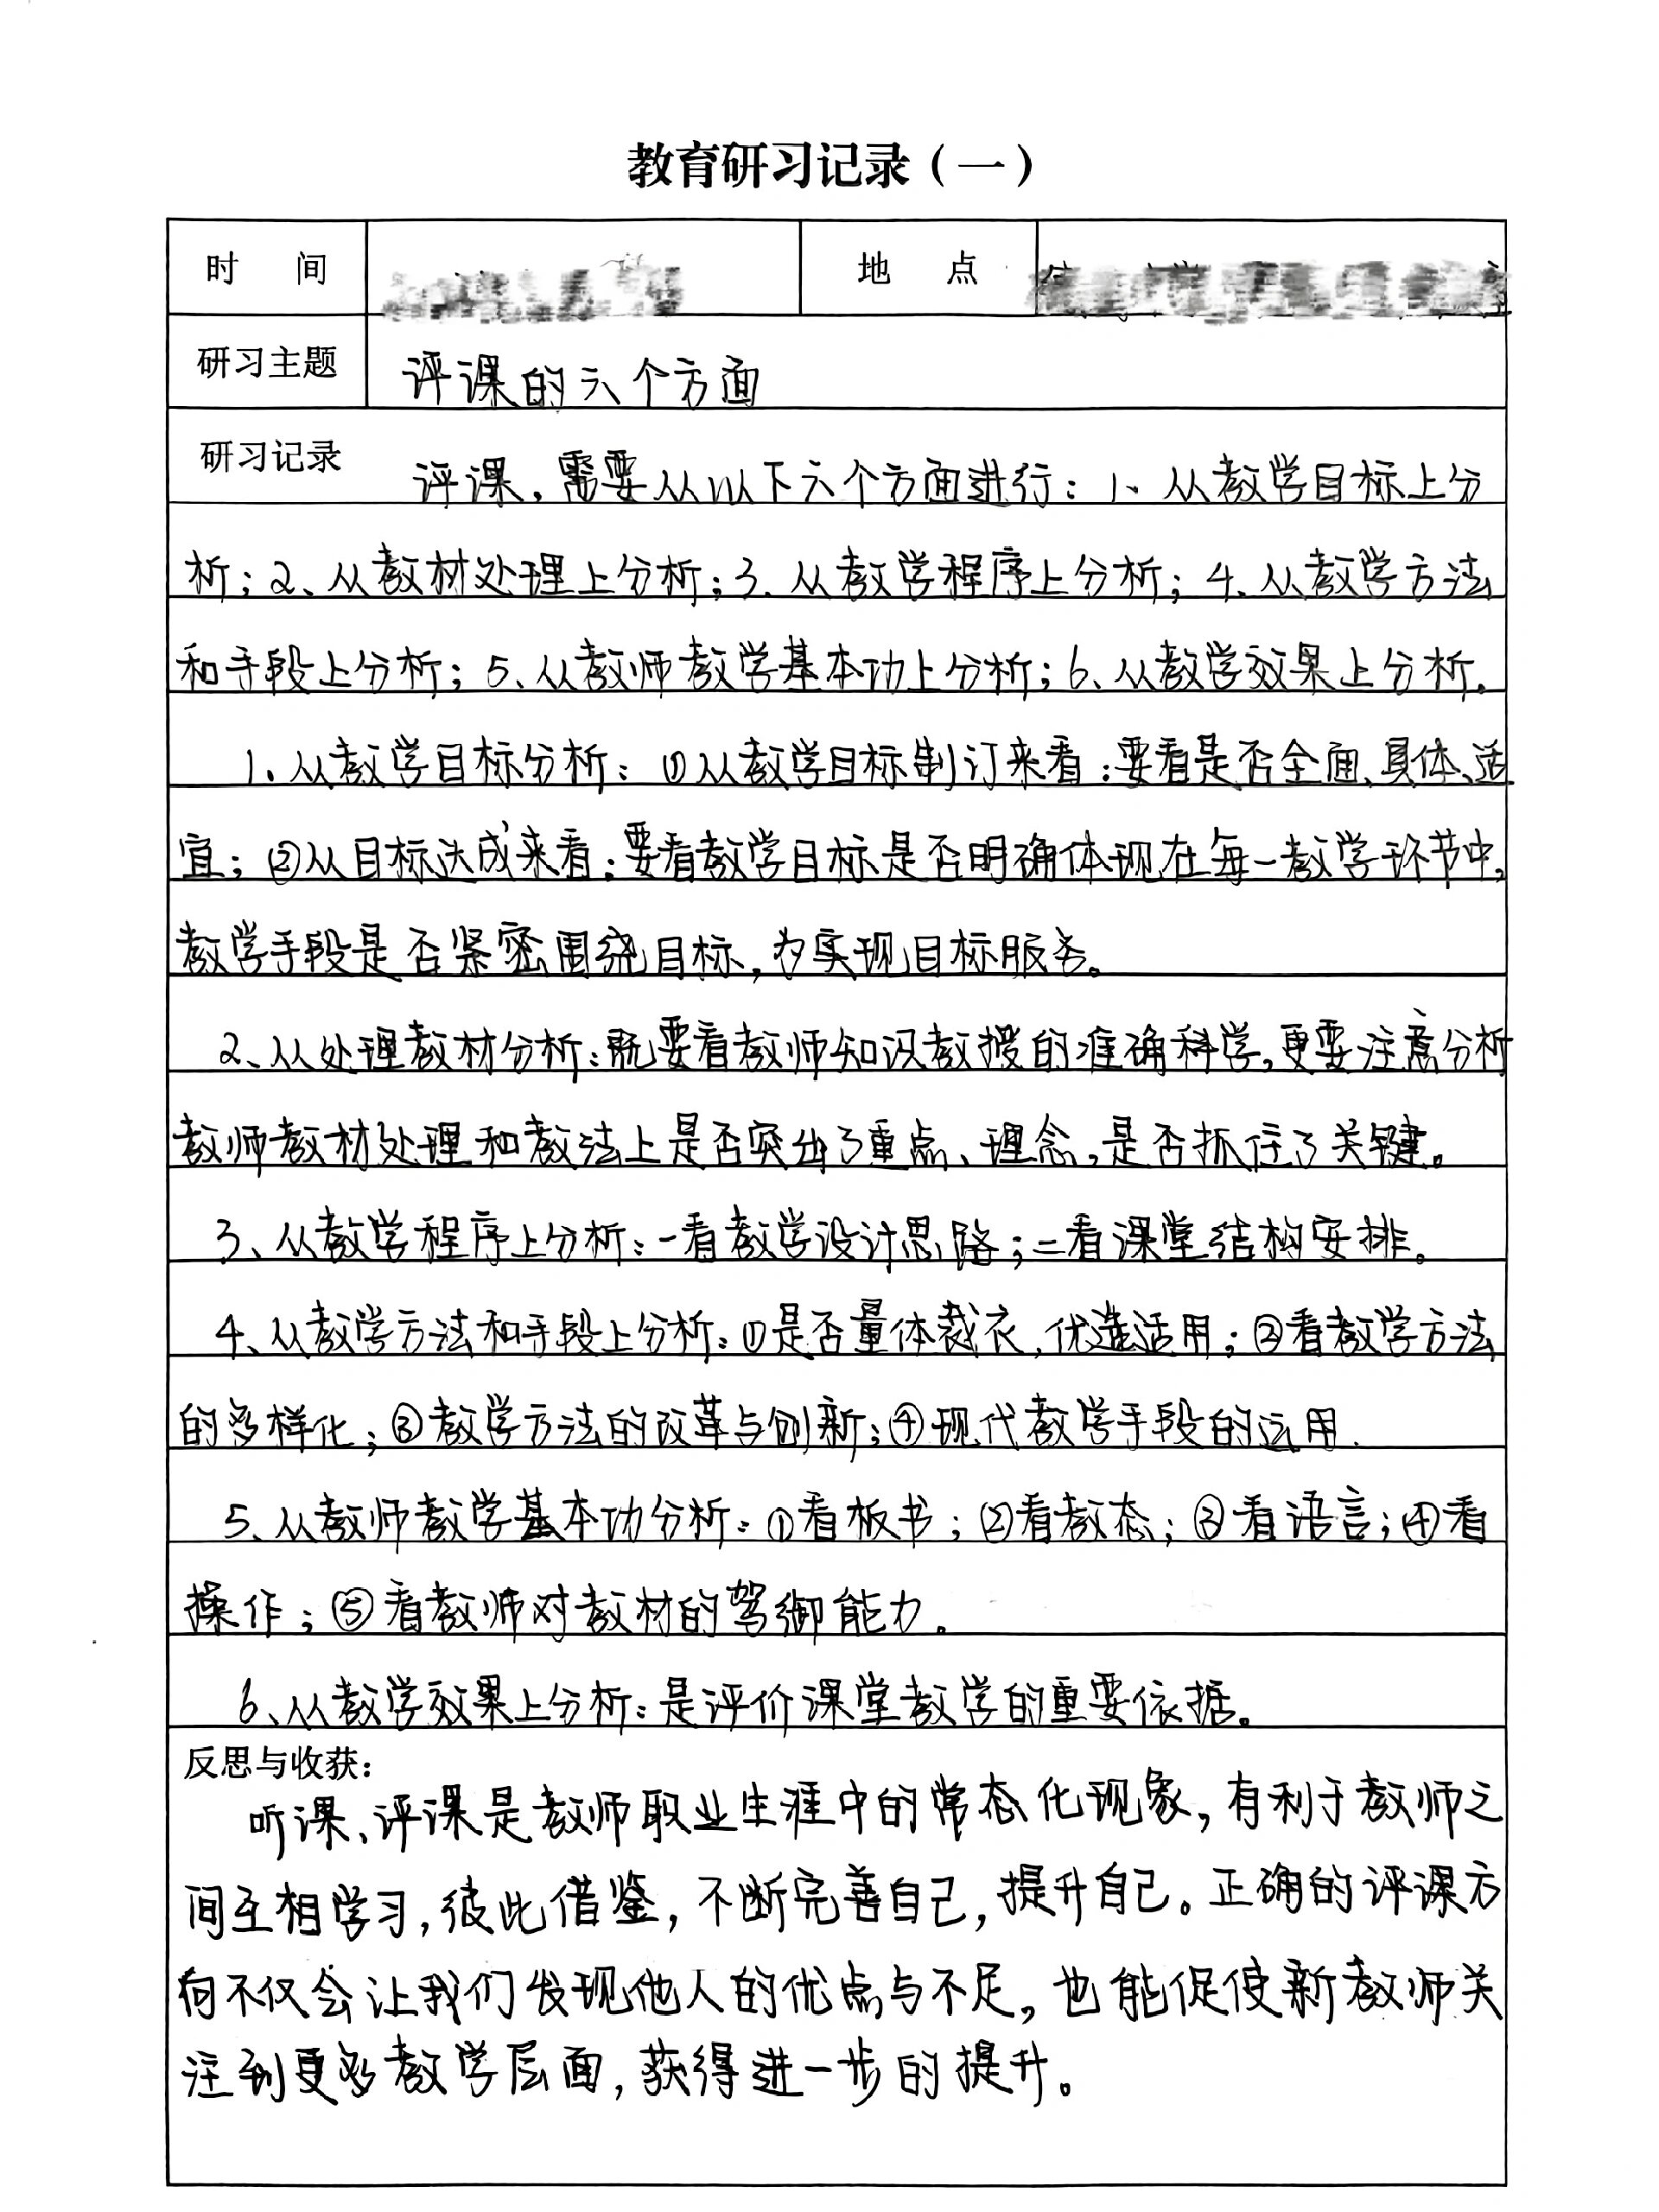 教育研习记录（一）
时 间 地 点
研习主题 评课的六个方面
研习记录 评课，需要从以下六个方面进行：1、从教学目标上分
析；2、从教材处理上分析；3、从教学程序上分析；4、从教学方法
和手段上分析；5、从教师教学基本功上分析；6、从教学效果上分析。
1、从教学目标分析：①从教学目标制订来看：要看是否全面、具体、适
宜；②从目标达成来看：要看教学目标是否明确体现在每一教学环节中，
教学手段是否紧密围绕目标，为实现目标服务。
2、从处理教材分析：既要看教师知识教授的准确科学，更要注意分析
教师教材处理和教法上是否突出了重点、理念，是否抓住了关键。
3、从教学程序上分析：一看教学设计思路；二看课堂结构安排。
4、从教学方法和手段上分析：①是否量体裁衣，优选活用；②看教学方法
的多样化；③教学方法的改革与创新；④现代教学手段的运用.
5、从教师教学基本功分析：①看板书；②看教态；③看语言；④看
操作；⑤看教师对教材的驾御能力。
6、从教学效果上分析：是评价课堂教学的重要依据。
反思与收获：
听课、评课是教师职业生涯中的常态化现象，有利于教师之
间互相学习，彼此借鉴，不断完善自己，提升自己。正确的评课方
向不仅会让我们发现他人的优点与不足，也能促使新教师关
注到更多教学层面，获得进一步的提升。